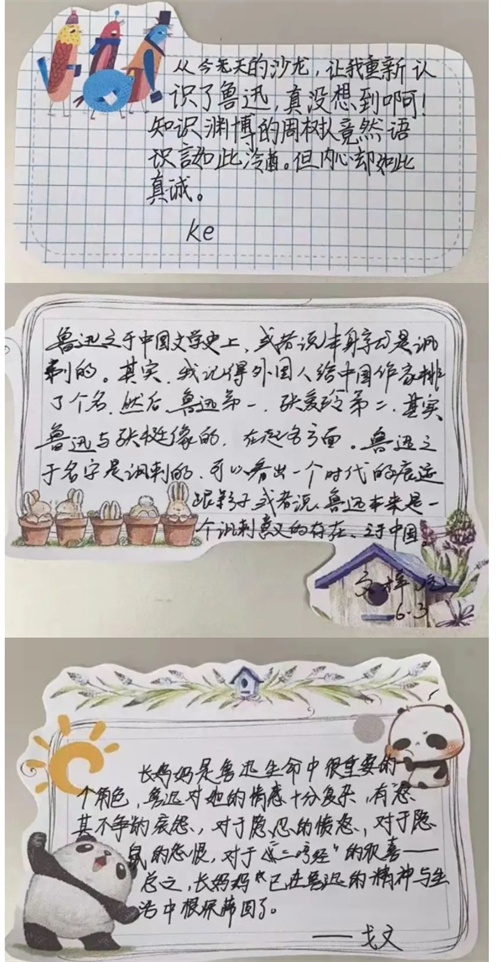 从今天的沙龙，让我重新认
识了鲁迅，真没想到啊！
知识渊博的周树人竟然语
言如此冷。但内心却如此
真诚。
Ke
鲁迅之于中国文学史上，或者说本身就是讽
刺的。其实，我记得外国人给中国作家排
了个名，然后，鲁迅第一，张爱玲第二，其实
鲁迅与张挺像的，在起名方面。鲁迅之
于名字是讽刺的，可以看出一个时代的
影子或者说，鲁迅本来是一
个讽刺意义的存在、之于中国
6.3
长妈妈是鲁迅生命中很重要的一
个角色，鲁迅对她的情感十分复杂，有怒
其不争的哀怨，对于隐忍的愤怒，对于隐
鼠的怨恨，对于"三哼经"的狂喜——
总之，长妈妈已在鲁迅的精神与生
活中根深蒂固了。
——戈文